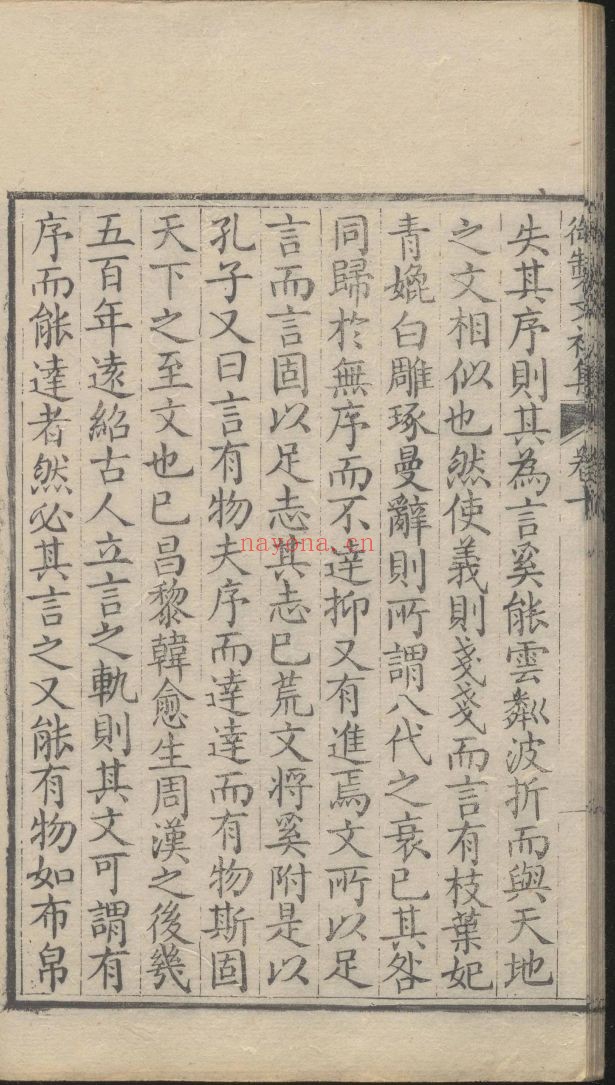 御製文初集 卷十
失其序則其為言奚能雲粼波折而與天地
之文相似也然使義則戔戔而言有枝葉妃
青媲白雕琢曼辭則所謂八代之衰已其咎
同歸於無序而不達抑又有進焉文所以足
言而言固以足志其志已荒文將奚附是以
孔子又曰言有物夫序而達達而有物斯固
天下之至文也已昌黎韓愈生周漢之後幾
五百年遠紹古人立言之軌則其文可謂有
序而能達者然必其言之又能有物如布帛
nayona.cn